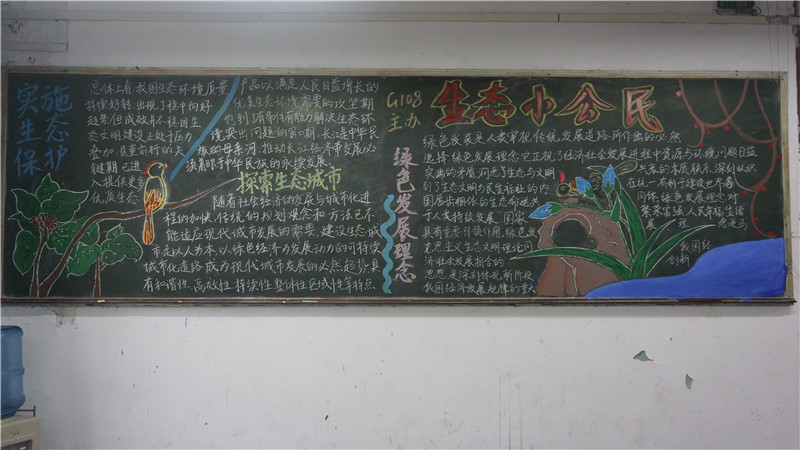 实施
生态
保护
总体上看我国生态环境质量
持续好转出现了稳中向好
趋势但成效并不稳固生
态文明建设正处于压力
叠加负重前行的关
键期已进
入提供更多
优质生态
产品以满足人民日益增长的
优美生态环境需要的攻坚期
也到了有条件有能力解决生态环
境突出问题的窗口期,长江是中华民
族母亲河,推动长江经济带发展必
须着眼于中华民族的永续发展、
探索生态城市
随着社会经济的发展与城市化进
程的加快传统的规划理念和方法已不
能适应现代城市发展的需要,建设生态城
市是以人为本,以绿色经济为发展动力的可持续
城市化道路成为现代城市发展的必然趋势具
有和谐性高效性持续性整体性区域性等特点
绿色发展理念
G108
主办
生态小公民
绿色发展是人类审视传统发展道路所作出的必然
选择绿色发展理念正视了经济社会发展进程中资源与环境问题日益
突出的矛盾,洞悉了生态与文明
到了生态文明为民生福祉的内
国居安
于人类持续发展
国家
具有生态引领作用,绿色发
克思主义生态文明理论同
济社会发展新合的
思想是深刻体现新阶段
我国经济发展规律的重大
共表的本质联系,深刻认识
在统一有利于建设世界各
问体,绿色发展理念对
繁荣富强人民幸福生活
发展
我国经
创新